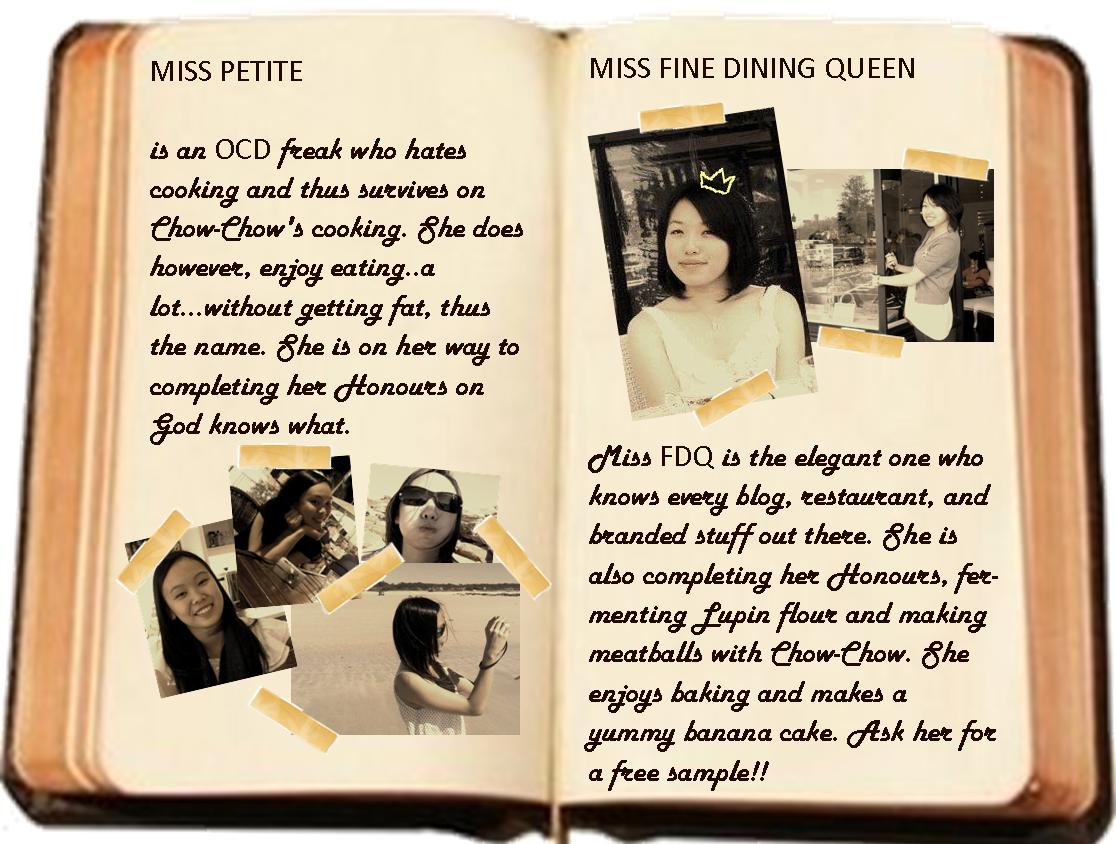 MISS PETITE
is an OCD freak who hates
cooking and thus survives on
Chow-Chow's cooking. She does
however, enjoy eating..a
lot...without getting fat, thus
the name. She is on her way to
completing her Honours on
God knows what.
MISS FINE DINING QUEEN
Miss FDQ is the elegant one who
knows every blog, restaurant, and
branded stuff out there. She is
also completing her Honours, fer-
menting Lupin flour and making
meatballs with Chow-Chow. She
enjoys baking and makes a
yummy banana cake. Ask her for
a free sample!!